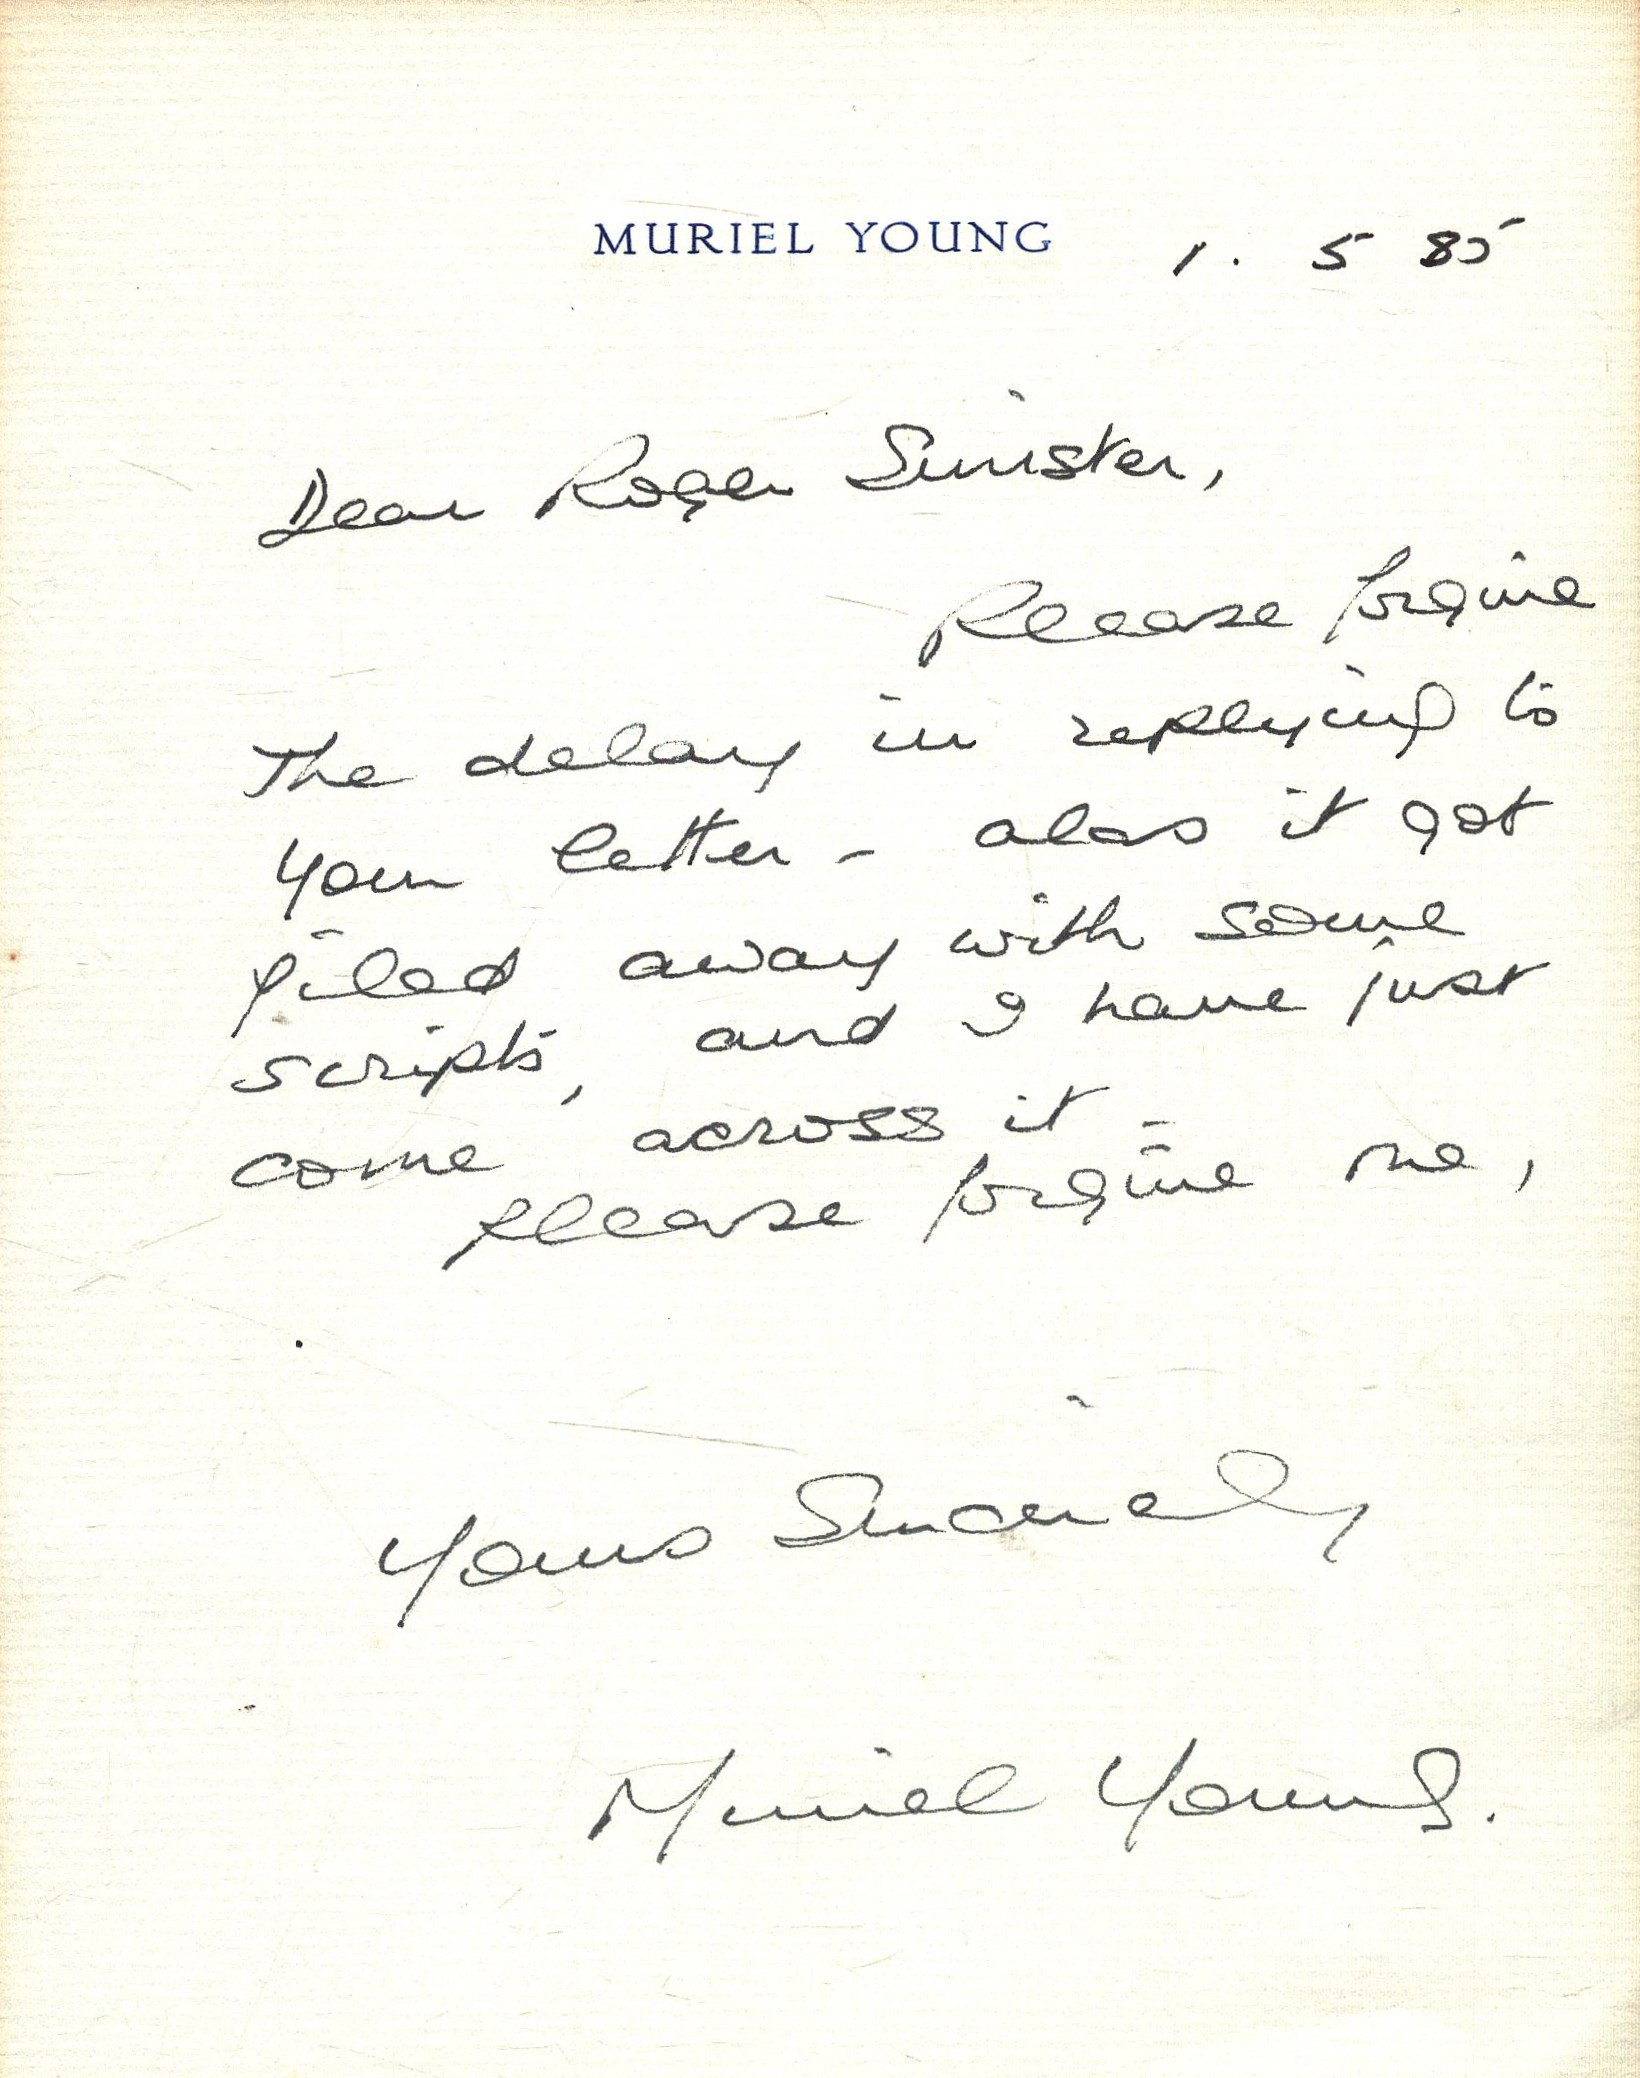 MURIEL YOUNG 1. 5 85
Dear Roger Sinister,
Please forgive
The delay in replying to
your letter - alas it got
piled away with some
scripts, and I have just
come across it -
please forgive me,
Yours Sincerely
Muriel Young.